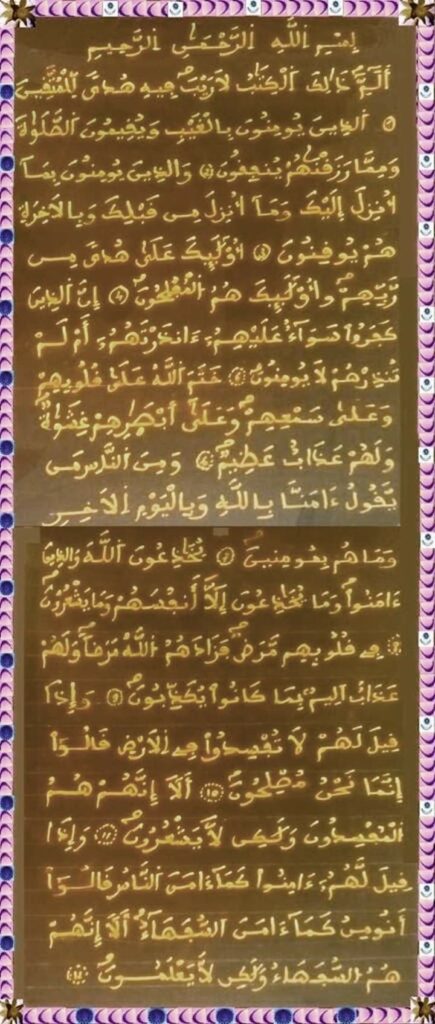 بِسْمِ اللَّهِ الرَّحْمَٰنِ الرَّحِيمِ
أَلَمِّ ذَٰلِكَ الْكِتَٰبُ لَا رَيْبَ فِيهِ هُدىً لِّلْمُتَّقِينَ
① الذِينَ يُومِنُونَ بِالْغَيْبِ وَيُقِيمُونَ الصَّلَوٰةَ
وَمِمَّا رَزَقْنَٰهُمْ يُنفِقُونَ ② وَالذِينَ يُومِنُونَ بِمَا
أُنزِلَ إِلَيْكَ وَمَا أُنزِلَ مِن قَبْلِكَ وَبِالَاخِرَةِ
هُمْ يُوقِنُونَ ③ أُوْلَٰئِكَ عَلَىٰ هُدىً مِّن
رَّبِّهِمْ وَأُوْلَٰئِكَ هُمُ الْمُفْلِحُونَ ④ إِنَّ الذِينَ
كَفَرُوا سَوَآءٌ عَلَيْهِمُۥ ءَآنذَرْتَهُمُۥ أَمْ لَمْ
تُنذِرْهُمْ لَا يُومِنُونَ ⑤ خَتَمَ اللَّهُ عَلَىٰ قُلُوبِهِمْ
وَعَلَىٰ سَمْعِهِمْ وَعَلَىٰ أَبْصَٰرِهِمْ غِشَٰوَةٌ
وَلَهُمْ عَذَابٌ عَظِيمٌ ⑥ وَمِنَ النَّاسِ مَن
يَّقُولُ ءَامَنَّا بِاللَّهِ وَبِالْيَوْمِ الَاخِرِ
وَمَا هُم بِمُومِنِينَ ⑦ يُخَٰدِعُونَ اللَّهَ وَالذِينَ
ءَامَنُوا وَمَا يُخَٰدِعُونَ إِلَّا أَنفُسَهُمْ وَمَا يَشْعُرُونَ
⑧ فِي قُلُوبِهِم مَّرَضٌ فَزَادَهُمُ اللَّهُ مَرَضاً وَلَهُمْ
عَذَابٌ اَلِيمٌ بِمَا كَانُوا يُكَذِّبُونَ ⑨ وَإِذَا
قِيلَ لَهُمْ لَا تُفْسِدُوا فِي الَارْضِ قَالُوا
إِنَّمَا نَحْنُ مُصْلِحُونَ ⑩ أَلَا إِنَّهُمْ هُمُ
الْمُفْسِدُونَ وَلَٰكِن لَّا يَشْعُرُونَ ⑪ وَإِذَا
قِيلَ لَهُمُۥ ءَامِنُوا كَمَا ءَامَنَ النَّاسُ قَالُوا
أَنُومِنُ كَمَا ءَامَنَ السُّفَهَاءُ أَلَا إِنَّهُمْ
هُمُ السُّفَهَاءُ وَلَٰكِن لَّا يَعْلَمُونَ ⑫